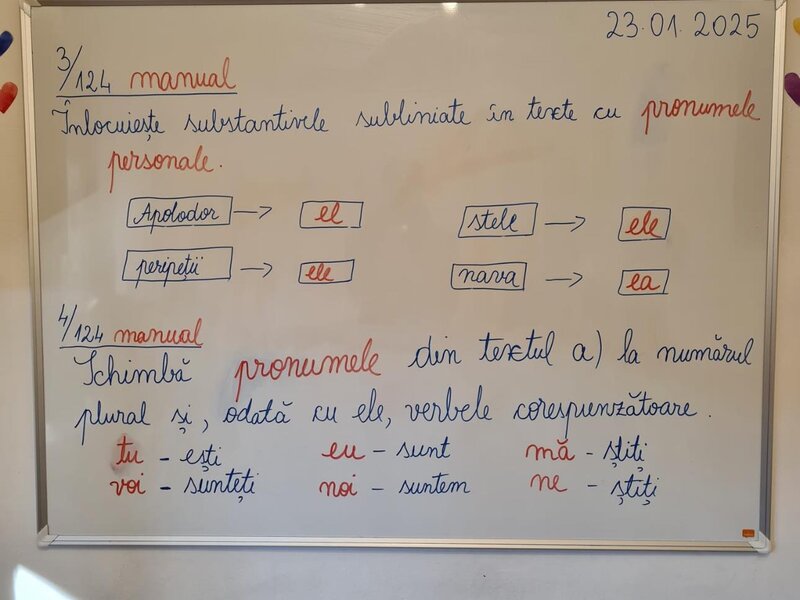 23.01.2025
3/124 manual
Înlocuiește substantivele subliniate în texte cu pronumele
personale.
Apolodor → el stele → ele
peripeții → ele nava → ea
4/124 manual
Schimbă pronumele din textul a) la numărul
plural și, odată cu ele, verbele corespunzătoare.
tu - ești eu - sunt mă - știți
voi - sunteți noi - suntem ne - știți